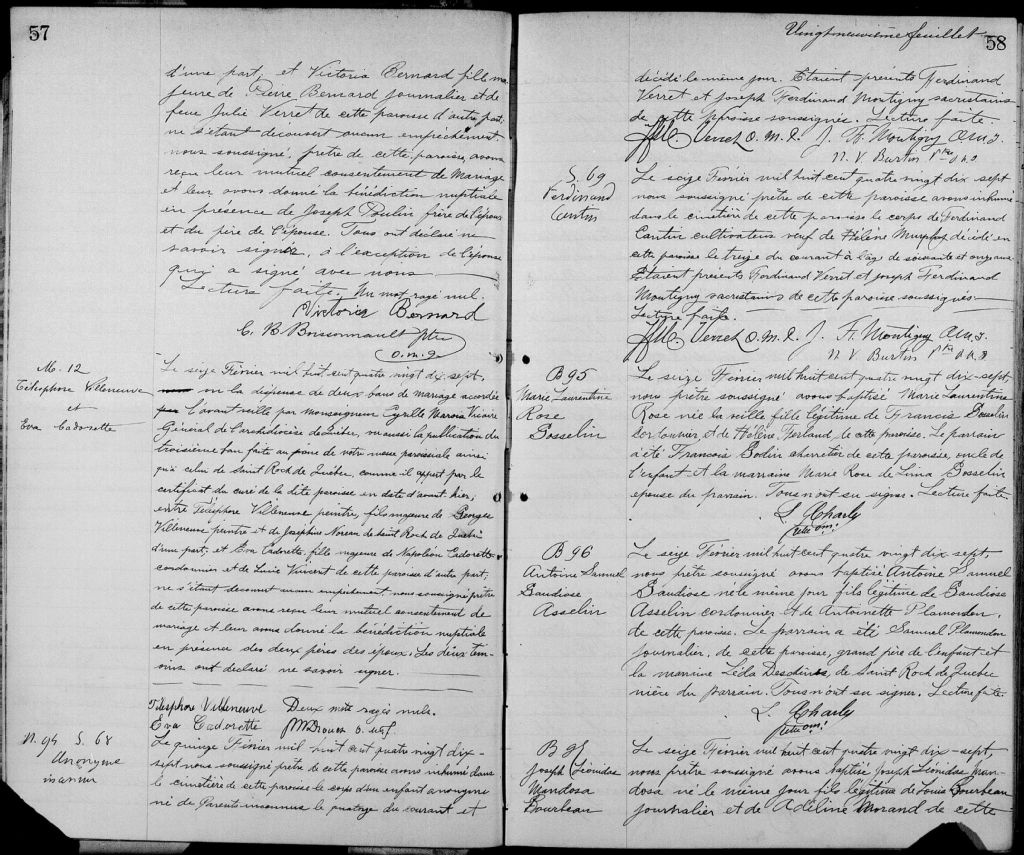 57
d'une part, et Victoria Bernard fille ma-
jeure de Pierre Bernard journalier et de
feue Julie Verret de cette paroisse d'autre part;
ne s'étant découvert aucun empêchement
nous soussigné, prêtre de cette paroisse, avons
reçu leur mutuel consentement de Mariage
et leur avons donné la bénédiction nuptiale
en présence de Joseph Poulin frère de l'époux
et du père de l'épouse. Tous ont déclaré ne
savoir signer, à l'exception de l'épouse
qui a signé avec nous
Lecture faite. Un mot rayé nul.
Victoria Bernard
C. B. Boissonnault ptre
o.m.i.
M. 12
Télesphore Villeneuve
et
Eva Cadorette
Le seize Février mil huit cent quatre vingt dix-sept,
vu la dispense de deux bans de mariage accordée
l'avant veille par Monseigneur Cyrille Marois Vicaire
Général de l'archidiocèse de Québec, vu aussi la publication du
troisième ban faite au prone de notre messe paroissiale ainsi
qu'à celui de Saint Roch de Québec, comme il appert par le
certificat du curé de la dite paroisse en date d'avant hier;
entre Télesphore Villeneuve peintre, fils majeur de Georges
Villeneuve peintre et de Joséphine Noreau de Saint Roch de Québec
d'une part; et Eva Cadorette, fille majeure de Napoléon Cadorette
cordonnier et de Vincent de cette paroisse d'autre part;
ne s'étant découvert aucun empêchement nous soussigné prêtre
de cette paroisse avons reçu leur mutuel consentement de
mariage et leur avons donné la bénédiction nuptiale
en présence des deux pères des époux. Les deux tém-
oins ont déclaré ne savoir signer.
Télesphore Villeneuve Deux mots rayés nuls.
Eva Cadorette
S. 68
Anonyme
Le quinze Février mil huit cent quatre vingt dix-
sept nous soussigné prêtre de cette paroisse avons inhumé dans
le cimetière de cette paroisse le corps d'un enfant anonyme
né de Parents inconnus le quatorze du courant et
Vingt neuvième feuillet
58
décédé le même jour. Etaient présents Ferdinand
Verret et Joseph Ferdinand Montigny sacristains
de cette paroisse soussignés. Lecture faite.
Verret O.M.I. J. F. Montigny O.M.I.
N. V. Burtin Ptre O.M.I.
S. 69
Ferdinand
Cantin
Le seize Février mil huit cent quatre vingt dix sept
nous soussigné prêtre de cette paroisse avons inhumé
dans le cimetière de cette paroisse le corps de Ferdinand
Cantin cultivateur veuf de Hélène Murphy décédé en
cette paroisse le treize du courant à l'âge de soixante et onze ans
Etaient présents Ferdinand Verret et Joseph Ferdinand
Montigny sacristains de cette paroisse soussignés
Lecture faite.
Verret O.M.I. J. F. Montigny O.M.I.
N. V. Burtin Ptre O.M.I.
B 95
Marie Laurentine
Rose
Gosselin
Le seize Février mil huit cent quatre vingt dix-sept,
nous prêtre soussigné avons baptisé Marie Laurentine
Rose née la veille fille légitime de Francis Gosselin
cordonnier et de Hélène Ferland de cette paroisse. Le parrain
a été Francois Bodin charretier de cette paroisse, oncle de
l'enfant et la marraine Marie Rose de Lima Gosselin
epouse du parrain. Tous n'ont su signer. Lecture faite
L. Charly
ptre omi
B 96
Antoine Samuel
Gaudiose
Asselin
Le seize Février mil huit cent quatre vingt dix-sept,
nous prêtre soussigné avons baptisé Antoine Samuel
Gaudiose né le même jour fils légitime de Gaudiose
Asselin cordonnier et de Antoinette Plamondon,
de cette paroisse. Le parrain a été Samuel Plamondon
journalier, de cette paroisse, grand père de l'enfant et
la marraine Léda Deschênes, de Saint Roch de Québec
nièce du parrain. Tous n'ont su signer. Lecture faite.
L. Charly
ptre omi
B 97
Joseph Léonidas
Mandosa
Bourbeau
Le seize Février mil huit cent quatre vingt dix-sept,
nous prêtre soussigné avons baptisé Joseph Léonidas Man-
dosa né le même jour fils légitime de Louis Bourbeau
journalier et de Adéline Morand de cette